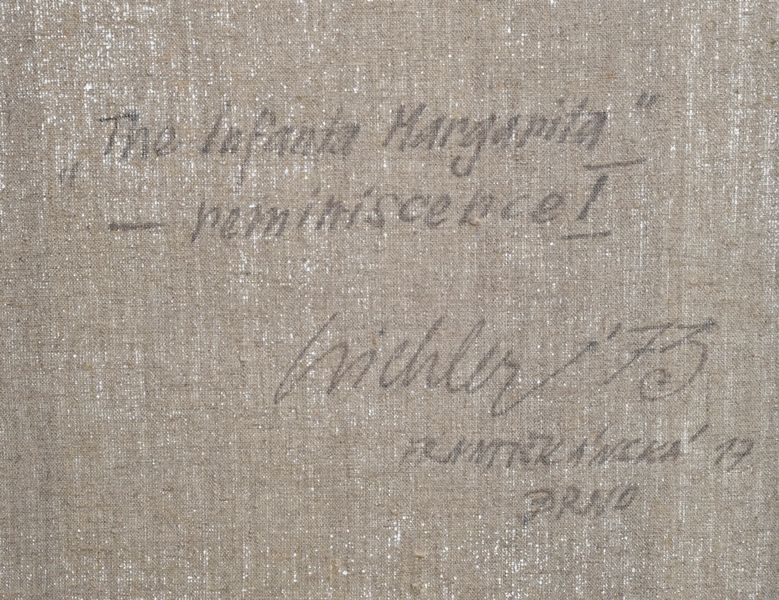 „The Infanta Margarita"
— reminiscence I
'73
FRANTIŠKÁNSKÁ 17
BRNO